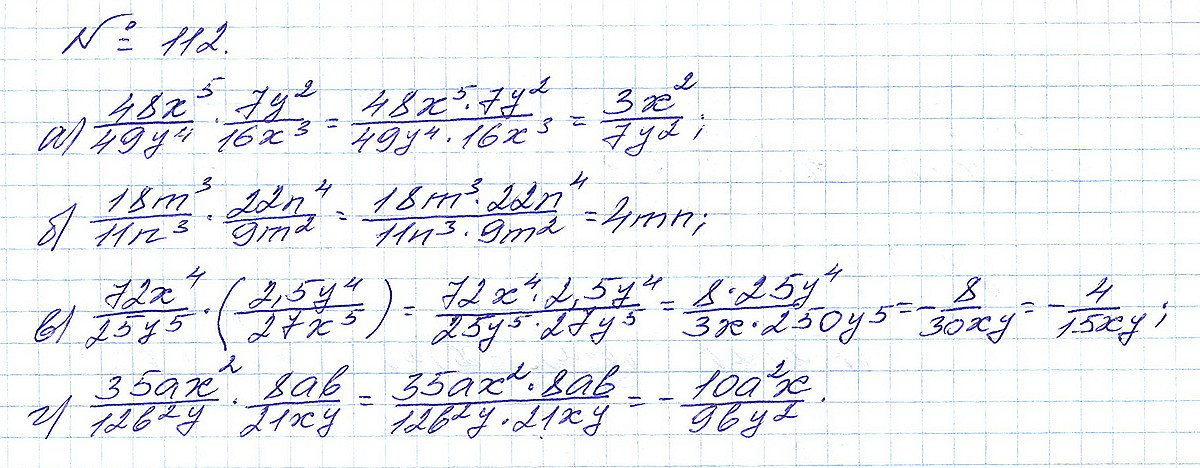 № 112.
а) 48x⁵/49y⁴ · 7y²/16x³ = 48x⁵·7y²/49y⁴·16x³ = 3x²/7y²;
б) 18m³/11n³ · 22n⁴/9m² = 18m³·22n⁴/11n³·9m² = 4mn;
в) 72x⁴/25y⁵ · (2,5y⁴/27x⁵) = 72x⁴·2,5y⁴/25y⁵·27y⁵ = 8·25y⁴/3x·250y⁵ = -8/30xy = -4/15xy;
г) 35ax²/12b²y · 8ab/21xy = 35ax²·8ab/12b²y·21xy = -10a²x/9by².